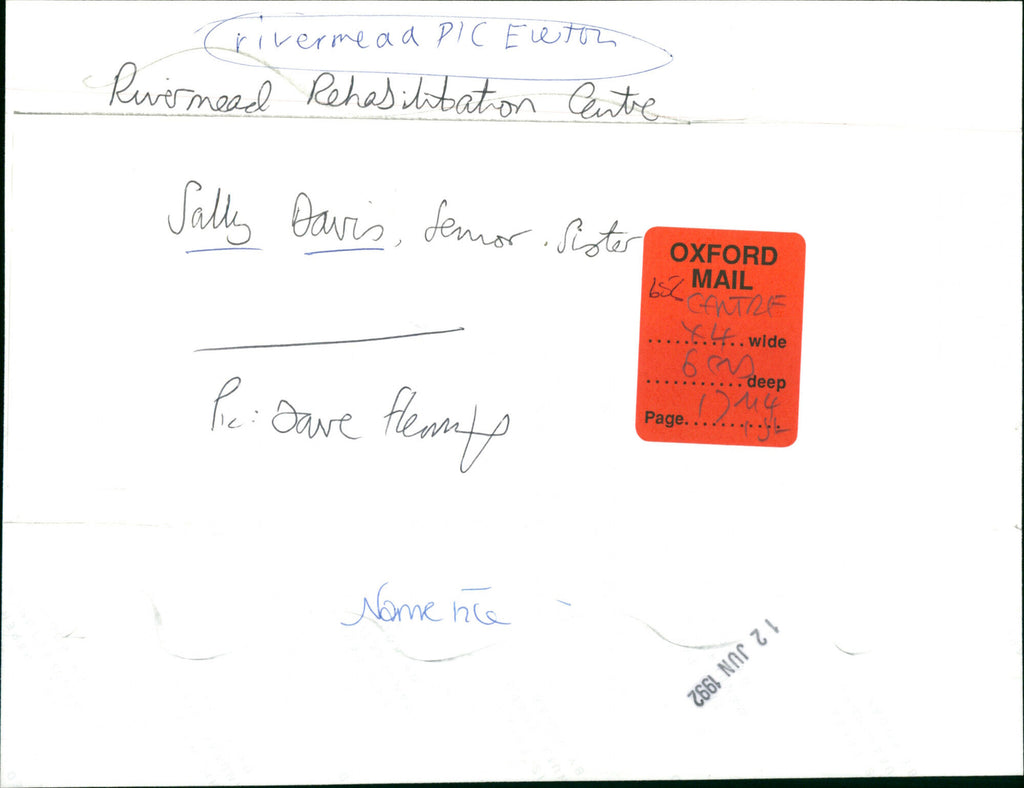 rivermead PIC
Rivermead Rehabilitation Centre
Sally Davis, Senior Sister
OXFORD
MAIL
65% CENTRE
x4 wide
6 cms deep
Page 17
Pic: Dave Fleming
Name
12 JUN 1992